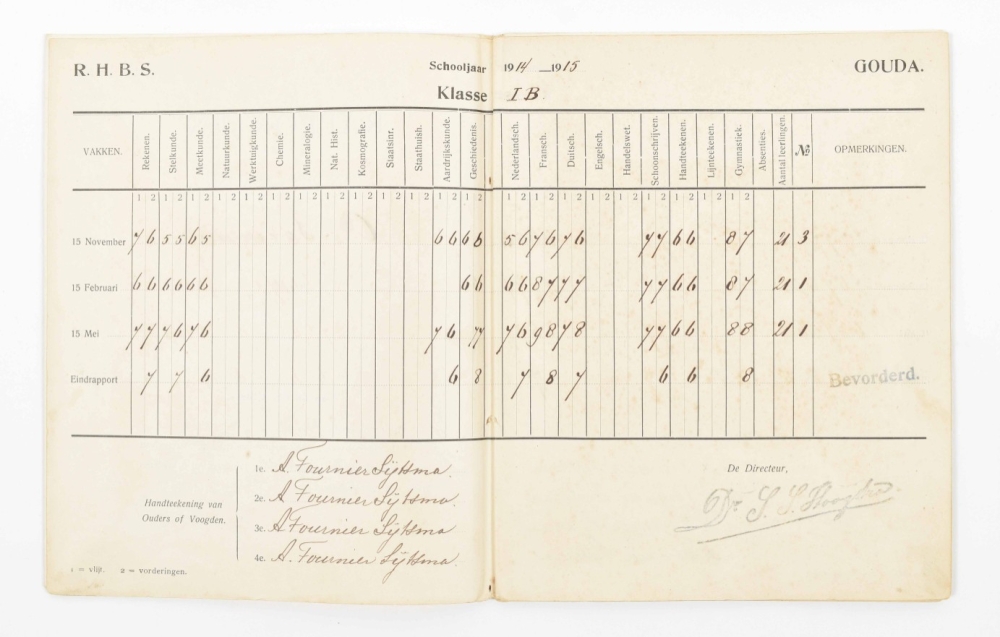 R. H. B. S. Schooljaar 1914 — 1915 GOUDA.
Klasse I B
VAKKEN. Rekenen. Stelkunde. Meetkunde. Natuurkunde. Werktuigkunde. Chemie. Mineralogie. Nat. Hist. Kosmografie. Staatsinr. Staathuish. Aardrijkskunde. Geschiedenis. Nederlandsch. Fransch. Duitsch. Engelsch. Handelswet. Schoonschrijven. Handteekenen. Lijnteekenen. Gymnastiek. Absenties. Aantal leerlingen. № OPMERKINGEN.
1 2 1 2 1 2 1 2 1 2 1 2 1 2 1 2 1 2 1 2 1 2 1 2 1 2 1 2 1 2 1 2 1 2 1 2 1 2 1 2 1 2 1 2
15 November 7 6 5 5 6 5 6 6 6 6 5 6 7 6 7 6 7 7 6 6 8 7 21 3
15 Februari 6 6 6 6 6 6 6 6 6 6 8 7 7 7 7 7 6 6 8 7 21 1
15 Mei 7 7 7 6 7 6 7 6 7 7 7 6 9 8 7 8 7 7 6 6 8 8 21 1
Eindrapport 7 7 6 6 8 7 8 7 6 6 8 Bevorderd.
Handteekening van
Ouders of Voogden.
1e. A. Fournier Sÿtsma.
2e. A Fournier Sÿtsma.
3e. A. Fournier Sÿtsma
4e. A. Fournier Sÿtsma.
De Directeur,
Dr. S. S.
1 = vlijt. 2 = vorderingen.